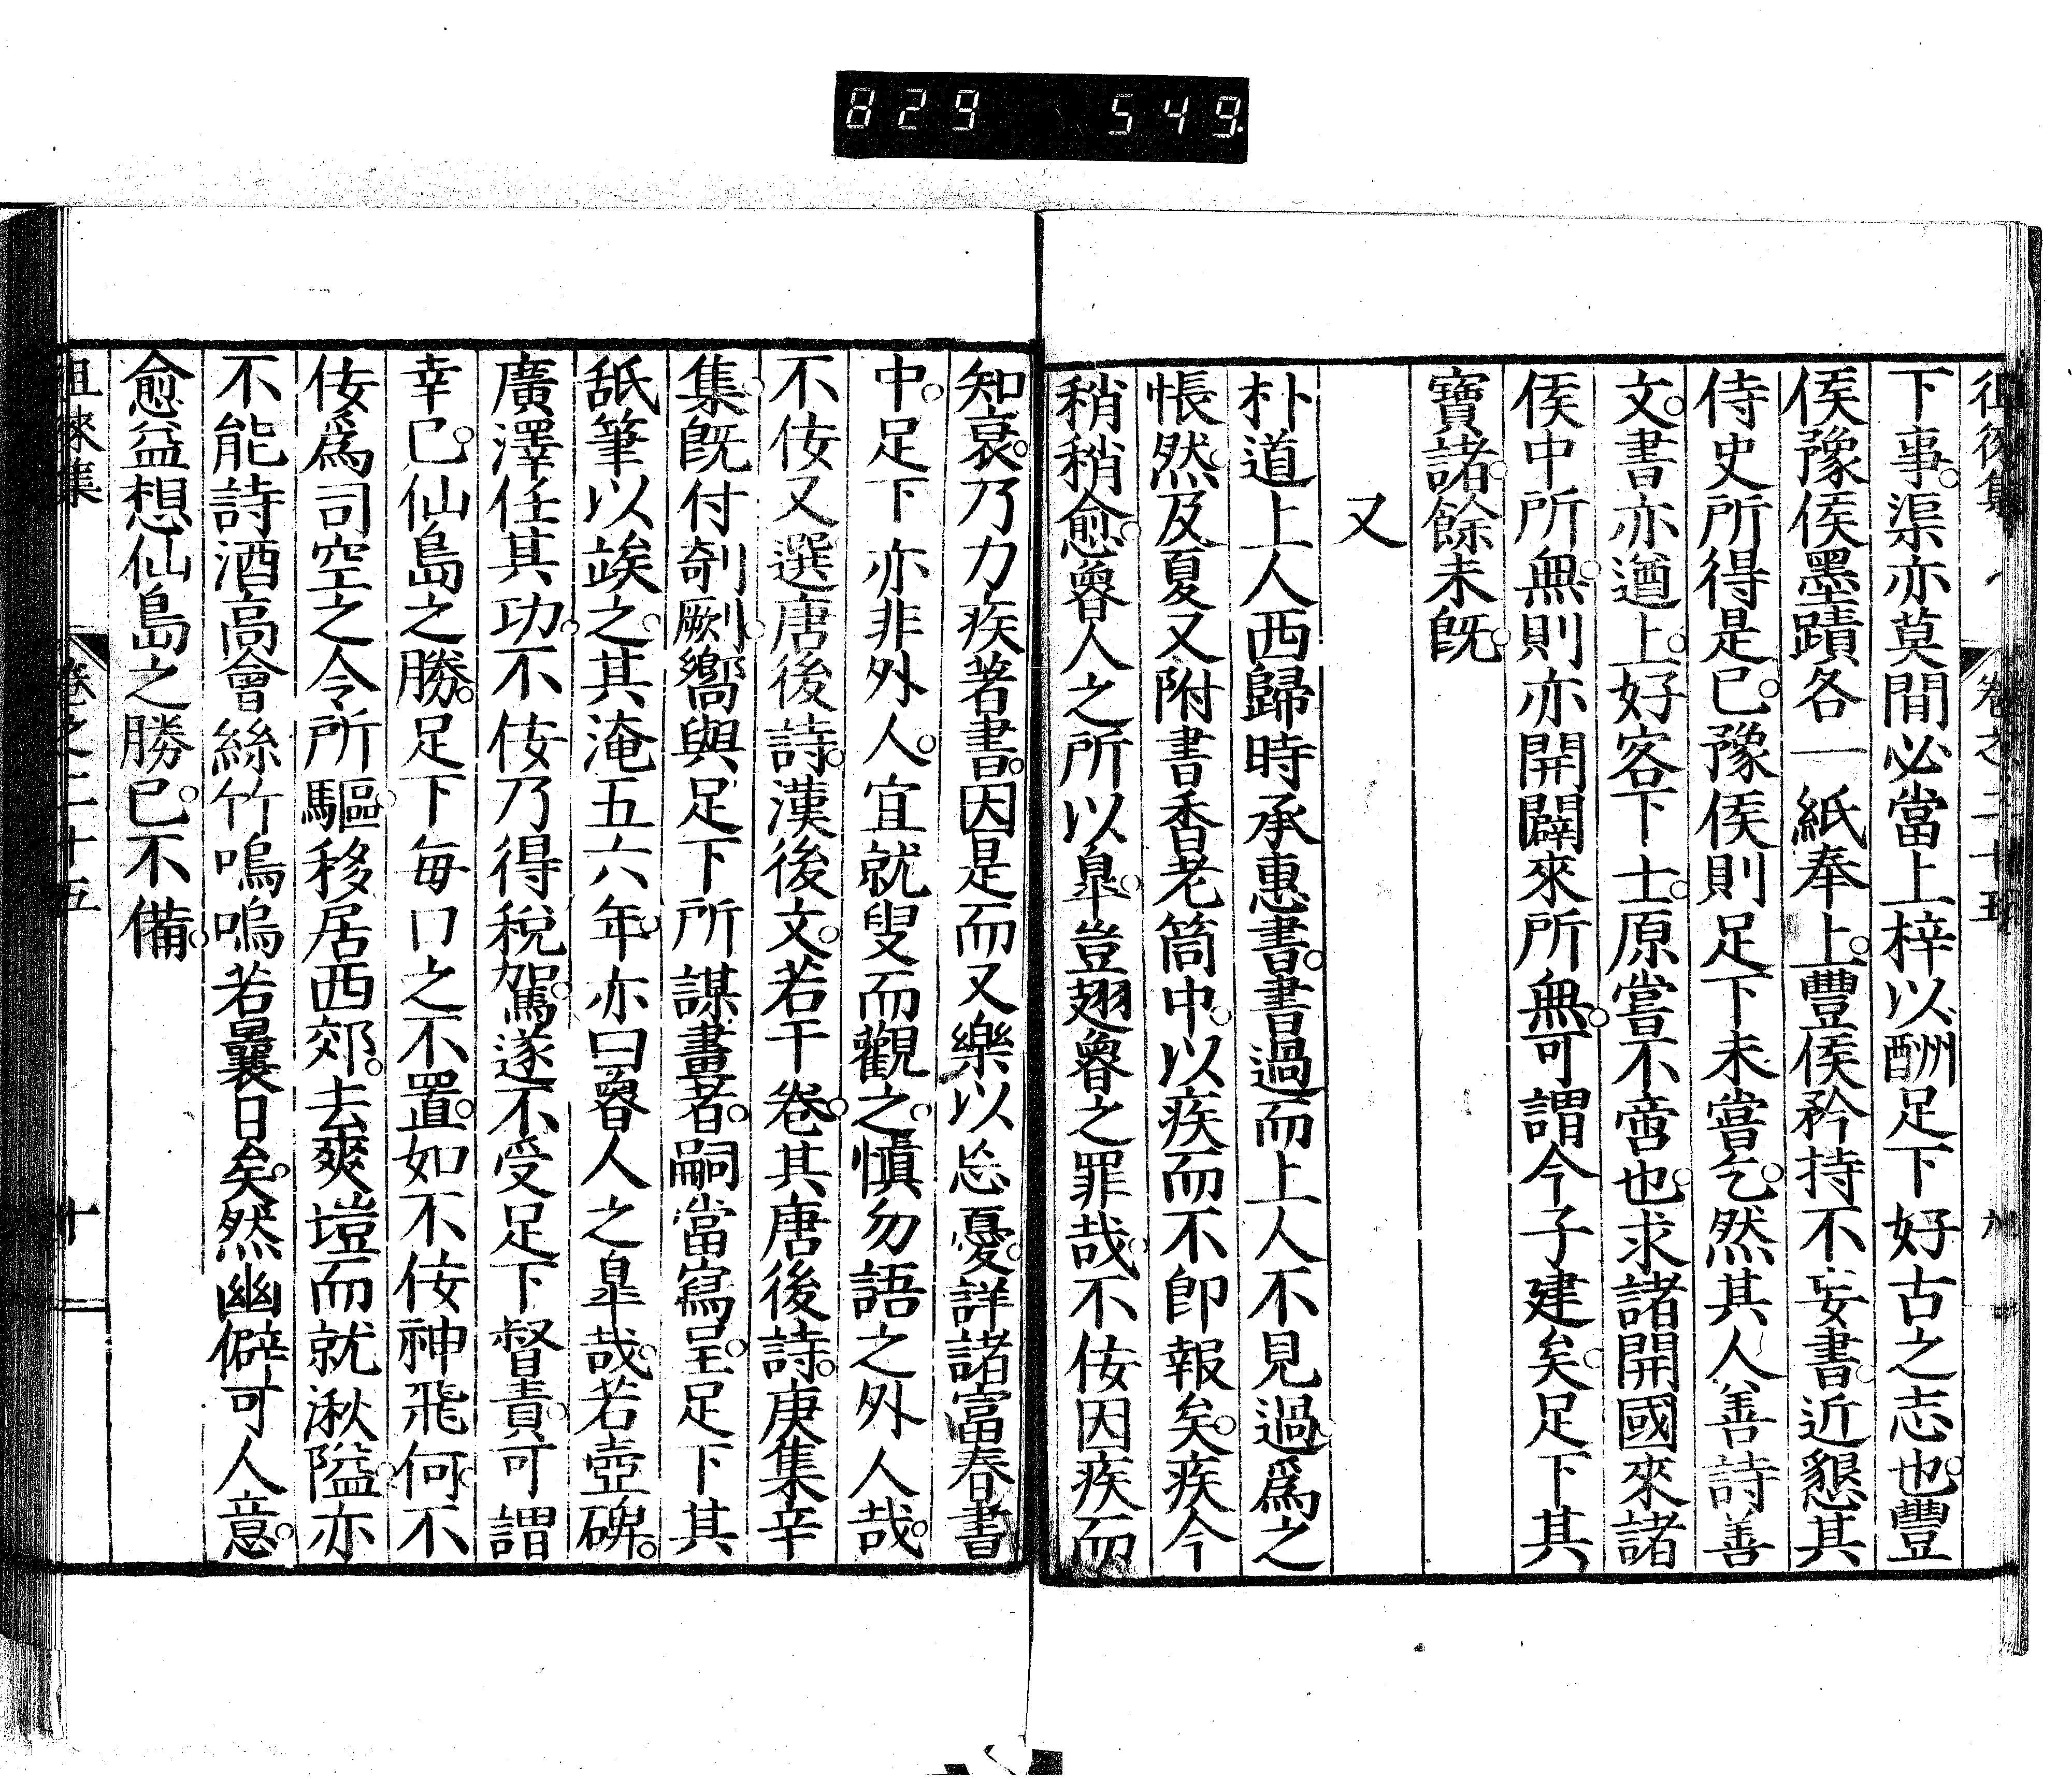 829 549
徂徠集 卷之二十五 九
下事。渠亦莫間必當上梓以酬足下好古之志也。豐
侯豫侯墨蹟各一紙奉上。豐侯矜持不妄書。近懇其
侍史所得是已。豫侯則足下未嘗乞。然其人善詩善
文。書亦遒上。好客下士。原嘗不啻也。求諸開國來諸
侯中所無。則亦開闢來所無。可謂今子建矣。足下其
寶諸。餘未旣。
又
朴道上人西歸時承惠書。書過而上人不見過。爲之
悵然。及夏又附書香老筒中。以疾而不即報矣。疾今
稍稍愈。眘人之所以辠。豈翅眘之罪哉。不佞因疾而
知衰。乃力疾著書。因是而又樂以忘憂。詳諸富春書
中。足下亦非外人。宜就叟而觀之。愼勿語之外人哉。
不佞又選唐後詩。漢後文。若干卷。其唐後詩。庚集辛
集。旣付剞劂。嚮與足下所謀畫者。嗣當寫呈。足下其
舐筆以竢之。其淹五六年。亦曰眘人之辠哉。若壺碑。
廣澤任其功。不佞乃得稅駕。遂不受足下督責。可謂
幸已。仙島之勝。足下每口之不置。如不佞神飛何。不
佞爲司空之令所驅。移居西郊。去爽塏而就湫隘。亦
不能詩酒高會絲竹嗚嗚若曩日矣。然幽僻可人意。
愈益想仙島之勝已。不備。
徂徠集 卷之二十五 十